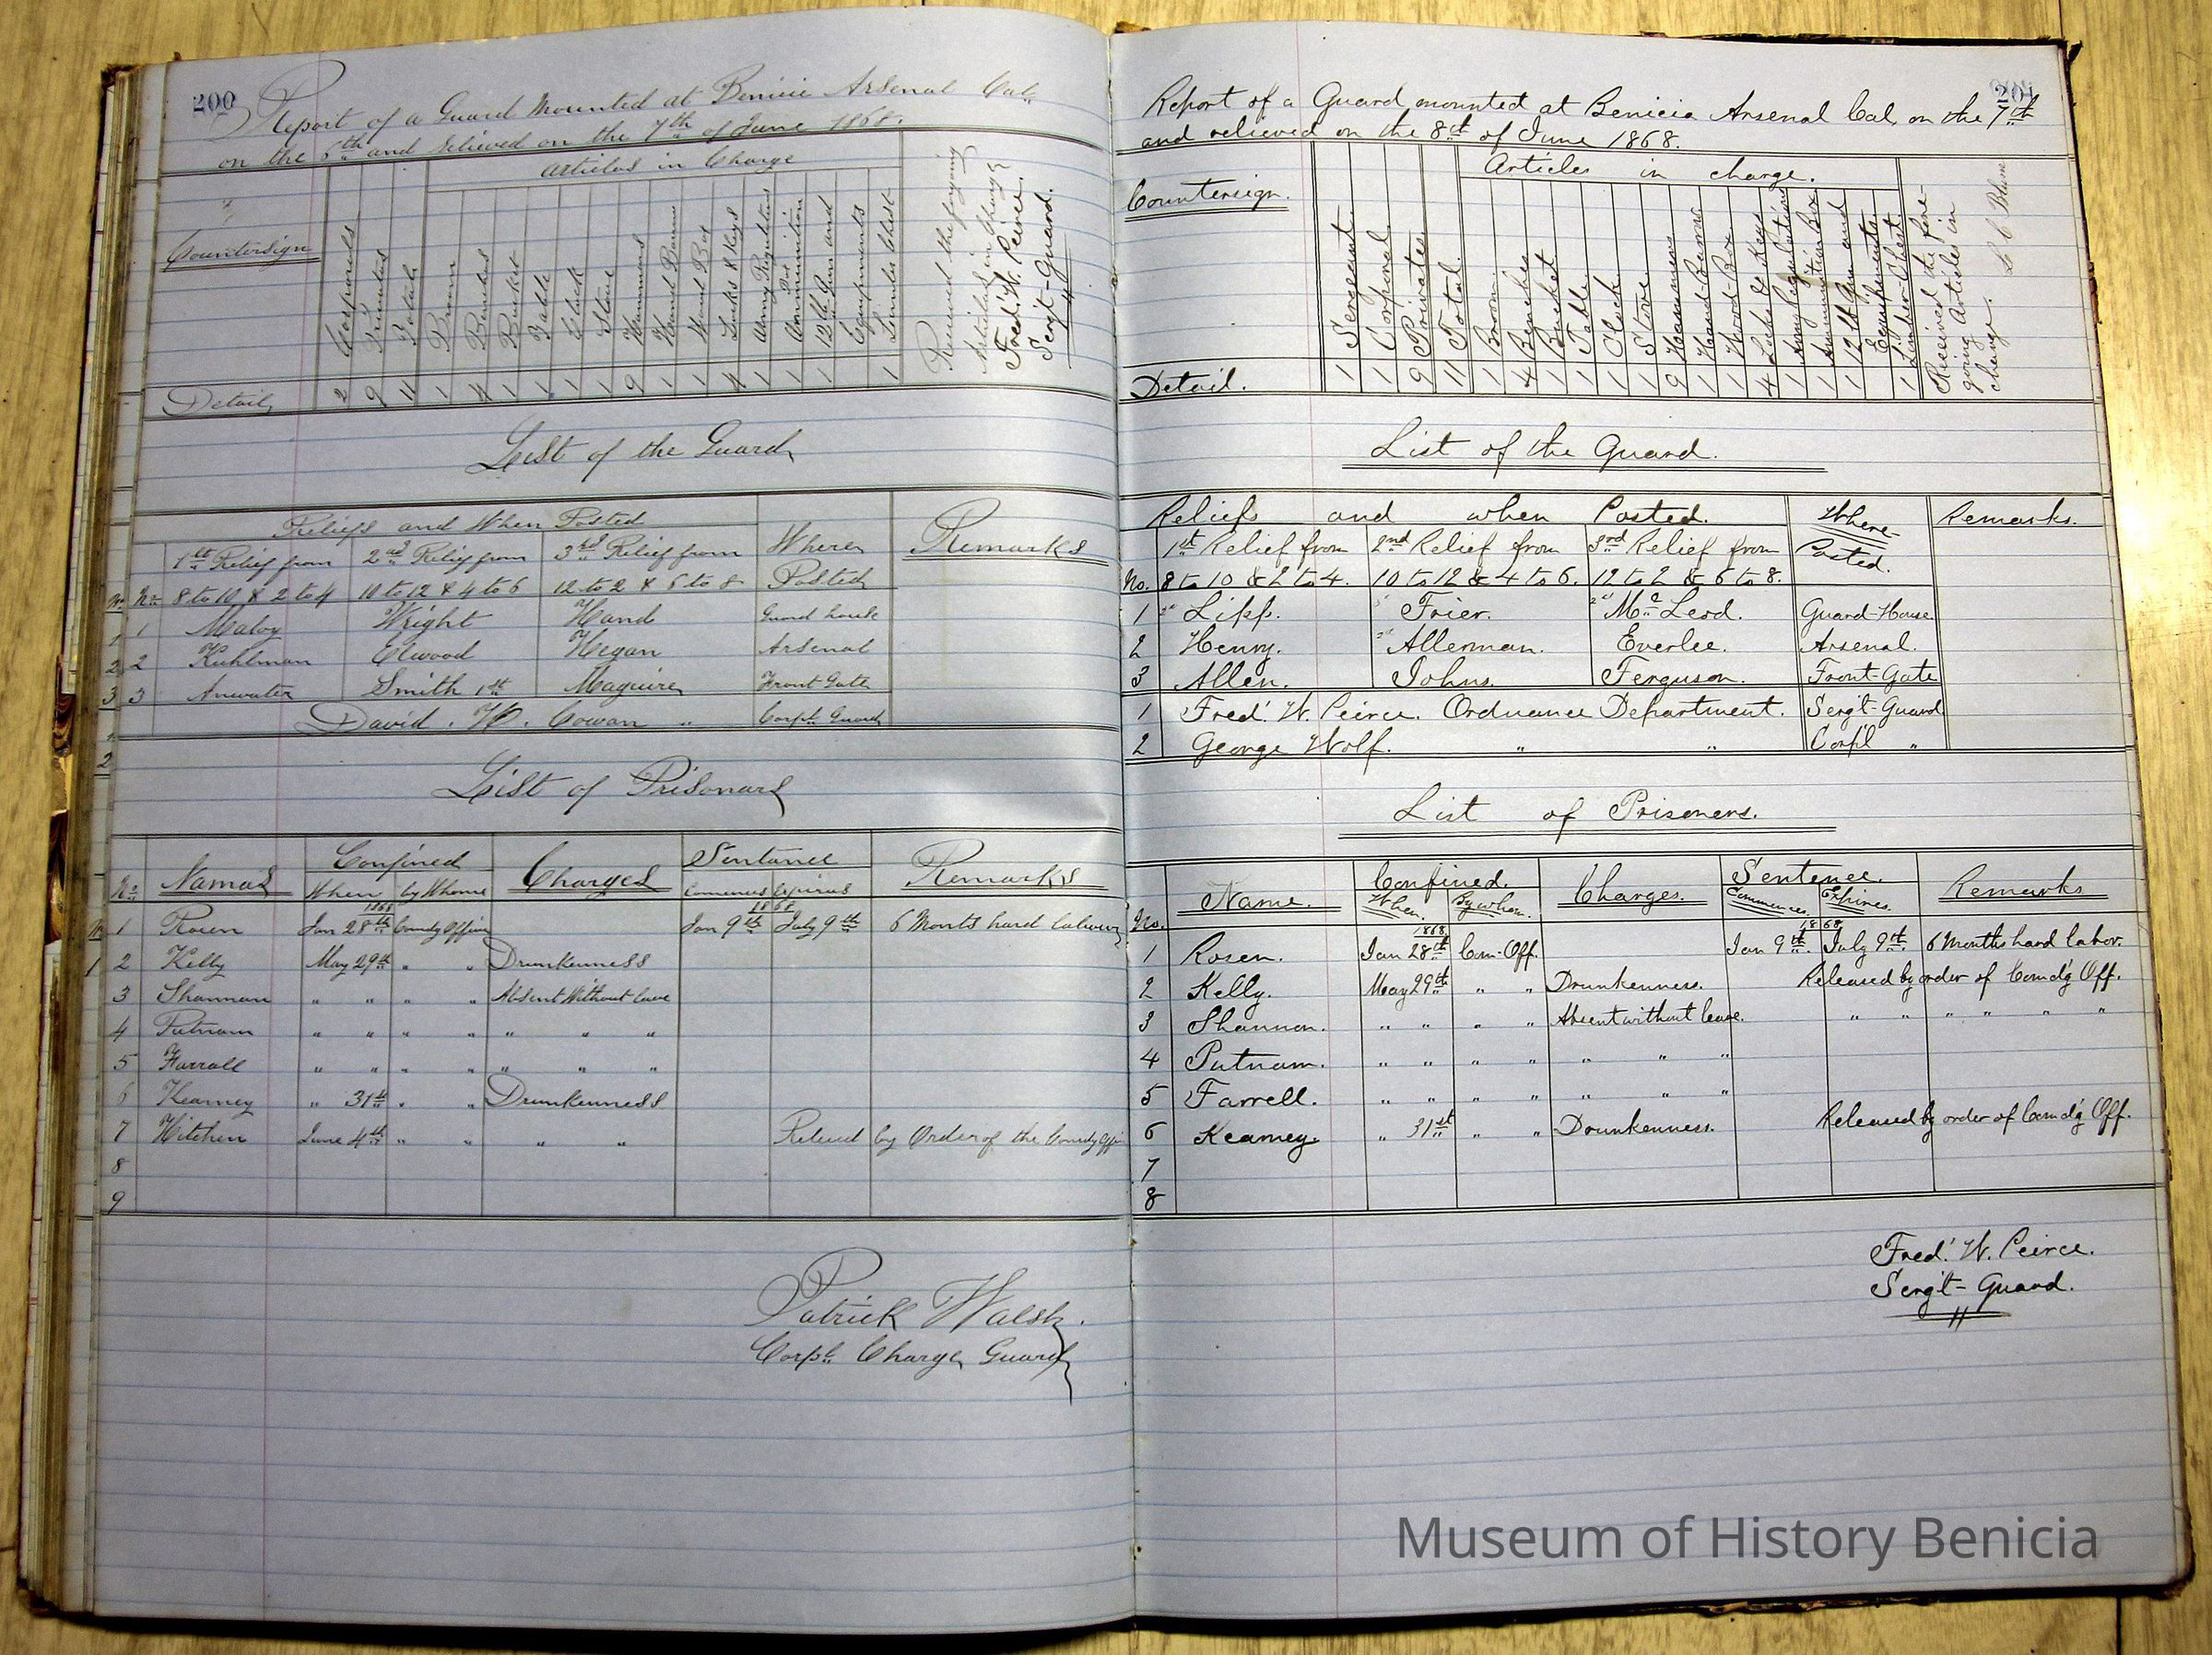 200
Report of a Guard Mounted at Benicia Arsenal Cal.
on the 6th and relieved on the 7th of June 1868.
Articles in Charge
Countersign
Corporals
Privates
Total
Broom
Benches
Bucket
Table
Clock
Stove
Hammers
Hand Barrow
Wood Box
Locks & Keys
Army Regulations
Ammunition Box
12 lb Gun and
Equipments
Limber Chest
Received the foregoing
Articles in charge
Fred. W. Peirce.
Serg't-Guard.
Detail 2 9 11 1 4 1 1 1 1 9 1 1 4 1 1 1 1
List of the Guard
Reliefs and When Posted
Where Posted
Remarks
No. 1st Relief from 2nd Relief from 3rd Relief from
8 to 10 & 2 to 4 10 to 12 & 4 to 6 12 to 2 & 6 to 8
1 Maloy Wright Hand Guard house
2 Kuhlman Elwood Hegan Arsenal
3 Anwater Smith 1st Maguire Front Gate
David. W. Cowan " Corpl. Guard
List of Prisonars
No. Names Confined Charges Sentance Remarks
When by Whome Comences Expires
1868 1868
1 Rosen Jan 28th Comdg Officer Jan 9th July 9th 6 Months hard labour
2 Kelly May 29th " " Drunkenness
3 Shannan " " " " Absent Without leave
4 Putnam " " " " " " "
5 Farrall " " " " " " "
6 Kearney " 31st " " Drunkenness
7 Hitchen June 4th " " " " Relesed by Order of the Comdg Officer
8
9
Patrick Walsh.
Corpl. Charge Guard
201
Report of a Guard mounted at Benicia Arsenal Cal, on the 7th
and relieved on the 8th of June 1868.
Articles in charge.
Countersign.
Sergeant.
Corporal.
Privates.
Total.
Broom.
Benches
Bucket
Table.
Clock.
Stove.
Hammers
Hand-Barrow
Wood-Box
Locks & Keys
Army Regulations
Ammunition Box
12 lb Gun and
Equipments.
Limber-Chest.
Received the fore-
going Articles in
charge.
Detail. 1 1 9 11 1 4 1 1 1 1 9 1 1 4 1 1 1 1
List of the Guard.
Reliefs and when Posted.
Where Posted.
Remarks.
1st Relief from 2nd Relief from 3rd Relief from
No. 8 to 10 & 2 to 4. 10 to 12 & 4 to 6. 12 to 2 & 6 to 8.
1 Lipp. Frier. McLeod. Guard-House.
2 Henry. Allerman. Everlee. Arsenal.
3 Allen. Johns. Ferguson. Front-Gate
1 Fred. W. Peirce. Ordnance Department. Serg't-Guard
2 George Wolf. " " Corp'l "
List of Prisoners.
No. Name. Confined. Charges. Sentence. Remarks
When. By whom. Commences. Expires.
1868 1868
1 Rosen. Jan 28th Com-Off. Jan 9th. July 9th. 6 Months hard labor.
2 Kelly. May 29th " " Drunkenness. Released by order of Comd'g Off.
3 Shannon. " " " " Absent without leave. " " " " " "
4 Putnam. " " " " " " "
5 Farrell. " " " " " " "
6 Kearney. " 31st " " Drunkenness. Released by order of Comd'g Off.
7
8
Fred. W. Peirce.
Serg't-Guard.
Museum of History Benicia